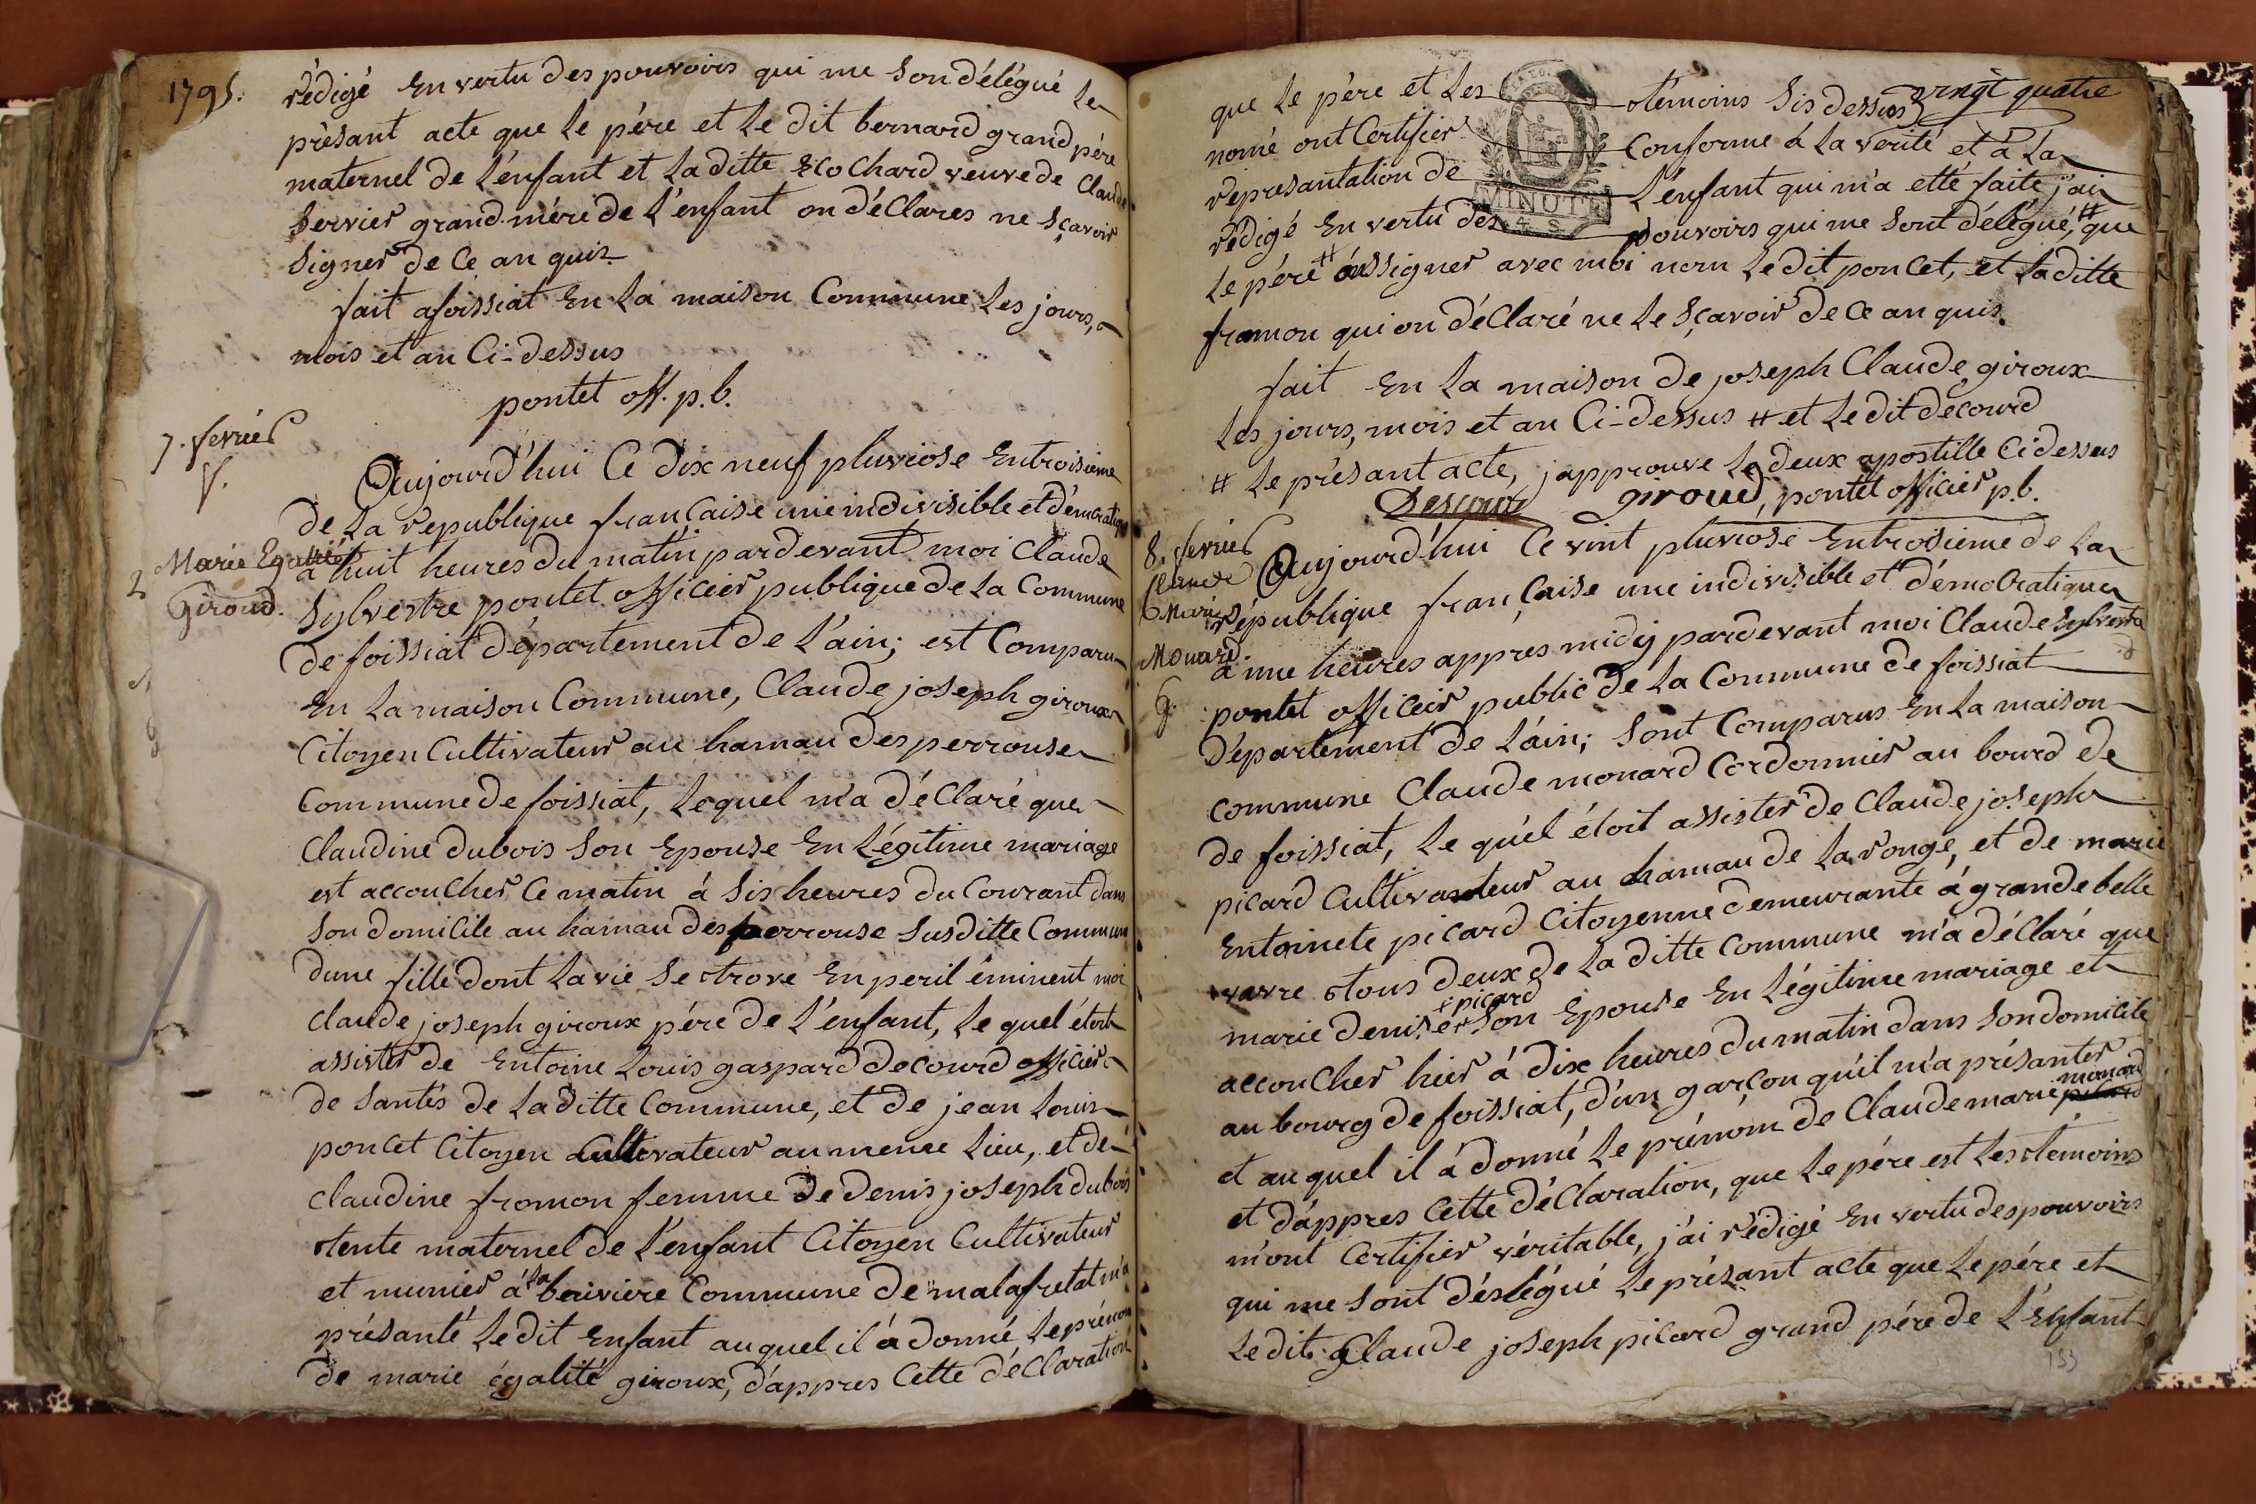 1795.
rédigé En vertu des pouvoirs qui me son délégué Le
présant acte que Le pére et Le dit bernard grand pére
maternel de L'énfant et La ditte Ecochard veuve de Claude
bervier grand-mére de L'enfant on déClares ne sçavoir
signer de Ce an quis
fait afoissiat En La maison Commune Les jours,
mois et an Ci-dessus
pontet off. p.b.
7. fevrier
Marie Egalité
Giroud.
Aujourd'hui Ce dix neuf pluviose Entroisieme
de La republique française une indivisible et démocratique
à huit heures du matin pardevant moi Claude
Sylvestre pontet officier publique de La Commune
de foissiat département de L'ain; est Comparu
En La maison Commune, Claude joseph giroux
Citoyen Cultivateur au hamau des perrouse
Commune de foissiat, Lequel m'a déClaré que
Claudine dubois son Epouse En Légitime mariage
est accoucher Ce matin á sis heures du Courant dans
son domicile au hamau des perrouse susditte Commune
dune fille dont La vie se trove En peril éminent moi
Claude joseph giroux pére de L'énfant, Le quel étoit
assister de Entoine Louis gaspard decourd officier
de santés de La ditte Commune, et de jean Louis
poncet Citoyen Cultivateur au meme Lieu, et de
Claudine fromon femme de denis joseph dubois
tente maternel de L'énfant Citoyen Cultivateur
et munier á La bouviere Commune de malafretat m'a
présanté Ledit Enfant auquel il á donné Le prénom
de marie égalité giroux, d'appres Cette déClaration
vingt quatre
que Le pére et Les témoins sis dessus
nomé ont Certifier Conforme á La vérité et á La
représantation de L'énfant qui m'a etté faite j'ai
MINUTE
4 S
rédigé En vertu des pouvoirs qui me sont délégué, # que
Le pére # on signer avec moi nom Ledit poncet, et Laditte
fromon qui on déClaré ne Le sçavoir de Ce an quis.
fait En La maison de joseph Claude giroux
Les jours, mois et an Ci-dessus # et Le dit decourd
# Le présant acte, japprouve Le deux apostille Cidessus
Descourd giroud, pontet officier p.b.
8. fevrier
Claude
Marie
Monard.
G.
Aujourd'hui Ce vint pluviose Entroisieme de La
république française une indivisible et démocratique
á une heures appres midy pardevant moi Claude sylvestre
pontet officier public de La Commune de foissiat
Département de L'ain; sont Comparus En La maison
commune Claude monard Cordonnier au bourd de
de foissiat, Le quel étoit assister de Claude joseph
picard Cultivateur au hamau de La ronge, et de marie
Entoinete picard Citoyenne demeurante á grande belle
vavre tous deux de La ditte Commune m'a déClaré que
marie denise picard son Epouse En Légitime mariage et
accoucher hier á dix heures du matin dans son domicile
au bourg de foissiat, d'un garçon qu'il m'a présanter
et auquel il á donné Le prénom de Claude marie monard
et d'appres Cette déClaration, que Le pére est Les témoins
m'ont Certifier véritable, j'ai rédigé En vertu des pouvoirs
qui me sont déslégué Le présant acte que Le pére et
Ledit Claude joseph picard grand pére de L'énfant
133